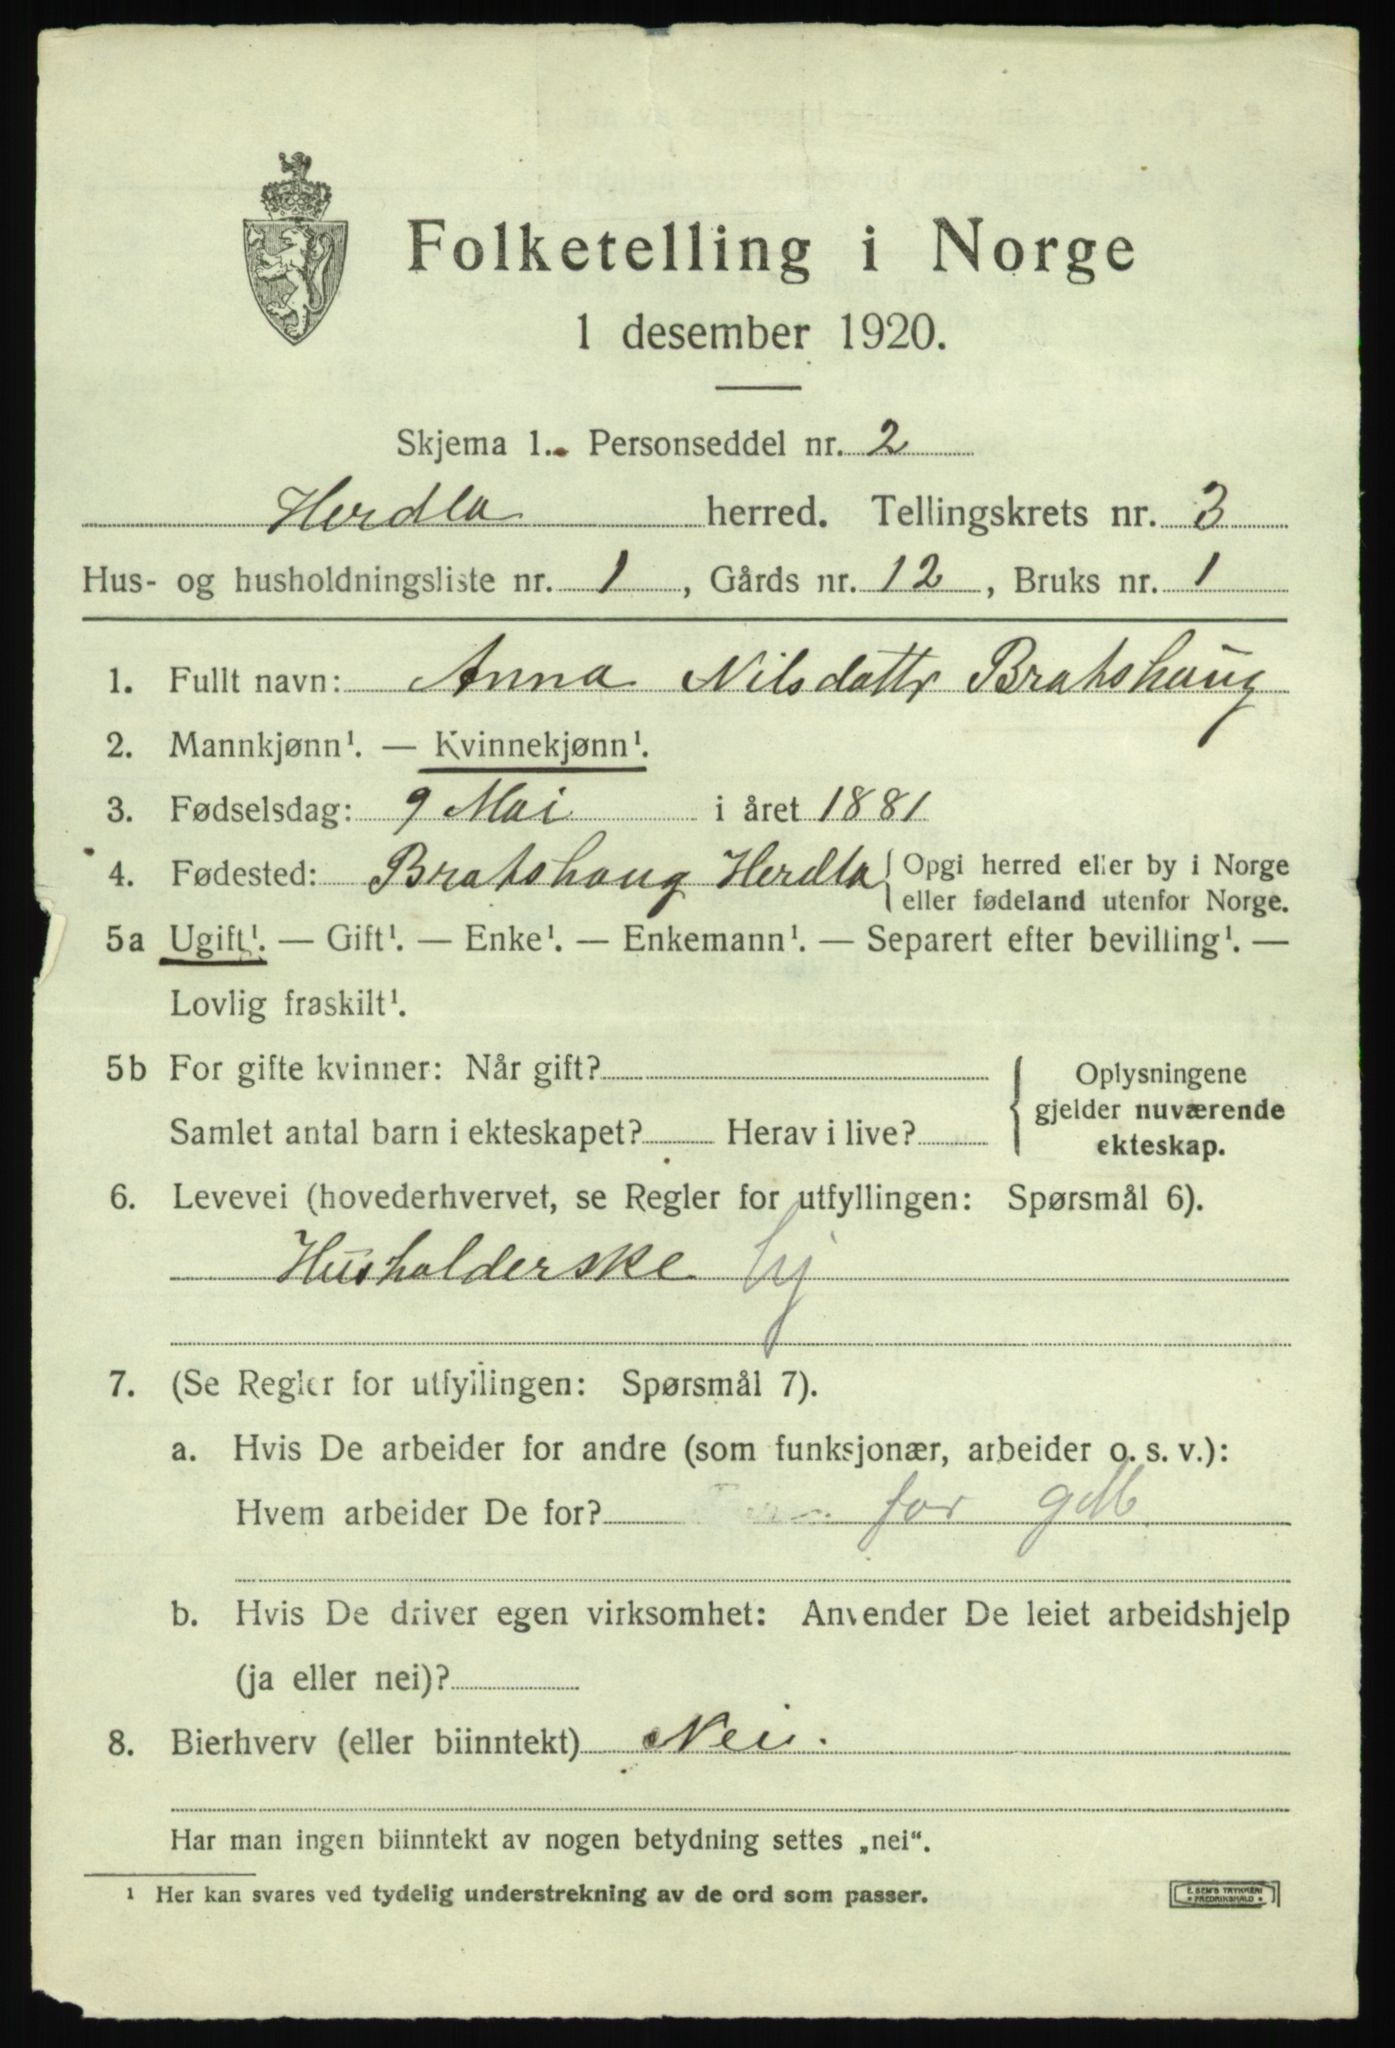 Folketelling i Norge
1 desember 1920.
Skjema 1. Personseddel nr. 2
Herdla herred. Tellingskrets nr. 3
Hus- og husholdningsliste nr. 1, Gårds nr. 12, Bruks nr. 1
1. Fullt navn: Anna Nilsdattr Bratshaug
2. Mannkjønn¹. — Kvinnekjønn¹.
3. Fødselsdag: 9 Mai i året 1881
4. Fødested: Bratshaug Herdla { Opgi herred eller by i Norge
eller fødeland utenfor Norge.
5a Ugift¹. — Gift¹. — Enke¹. — Enkemann¹. — Separert efter bevilling¹. —
Lovlig fraskilt¹.
5b For gifte kvinner: Når gift?
Samlet antal barn i ekteskapet? Herav i live?
{ Oplysningene
gjelder nuværende
ekteskap.
6. Levevei (hovederhvervet, se Regler for utfyllingen: Spørsmål 6).
Husholderske
7. (Se Regler for utfyllingen: Spørsmål 7).
a. Hvis De arbeider for andre (som funksjonær, arbeider o. s. v.):
Hvem arbeider De for? for
b. Hvis De driver egen virksomhet: Anvender De leiet arbeidshjelp
(ja eller nei)?
8. Bierhverv (eller biinntekt) Nei.
Har man ingen biinntekt av nogen betydning settes „nei“.
¹ Her kan svares ved tydelig understrekning av de ord som passer.
E. SEM'S TRYKKERI
FREDRIKSHALD